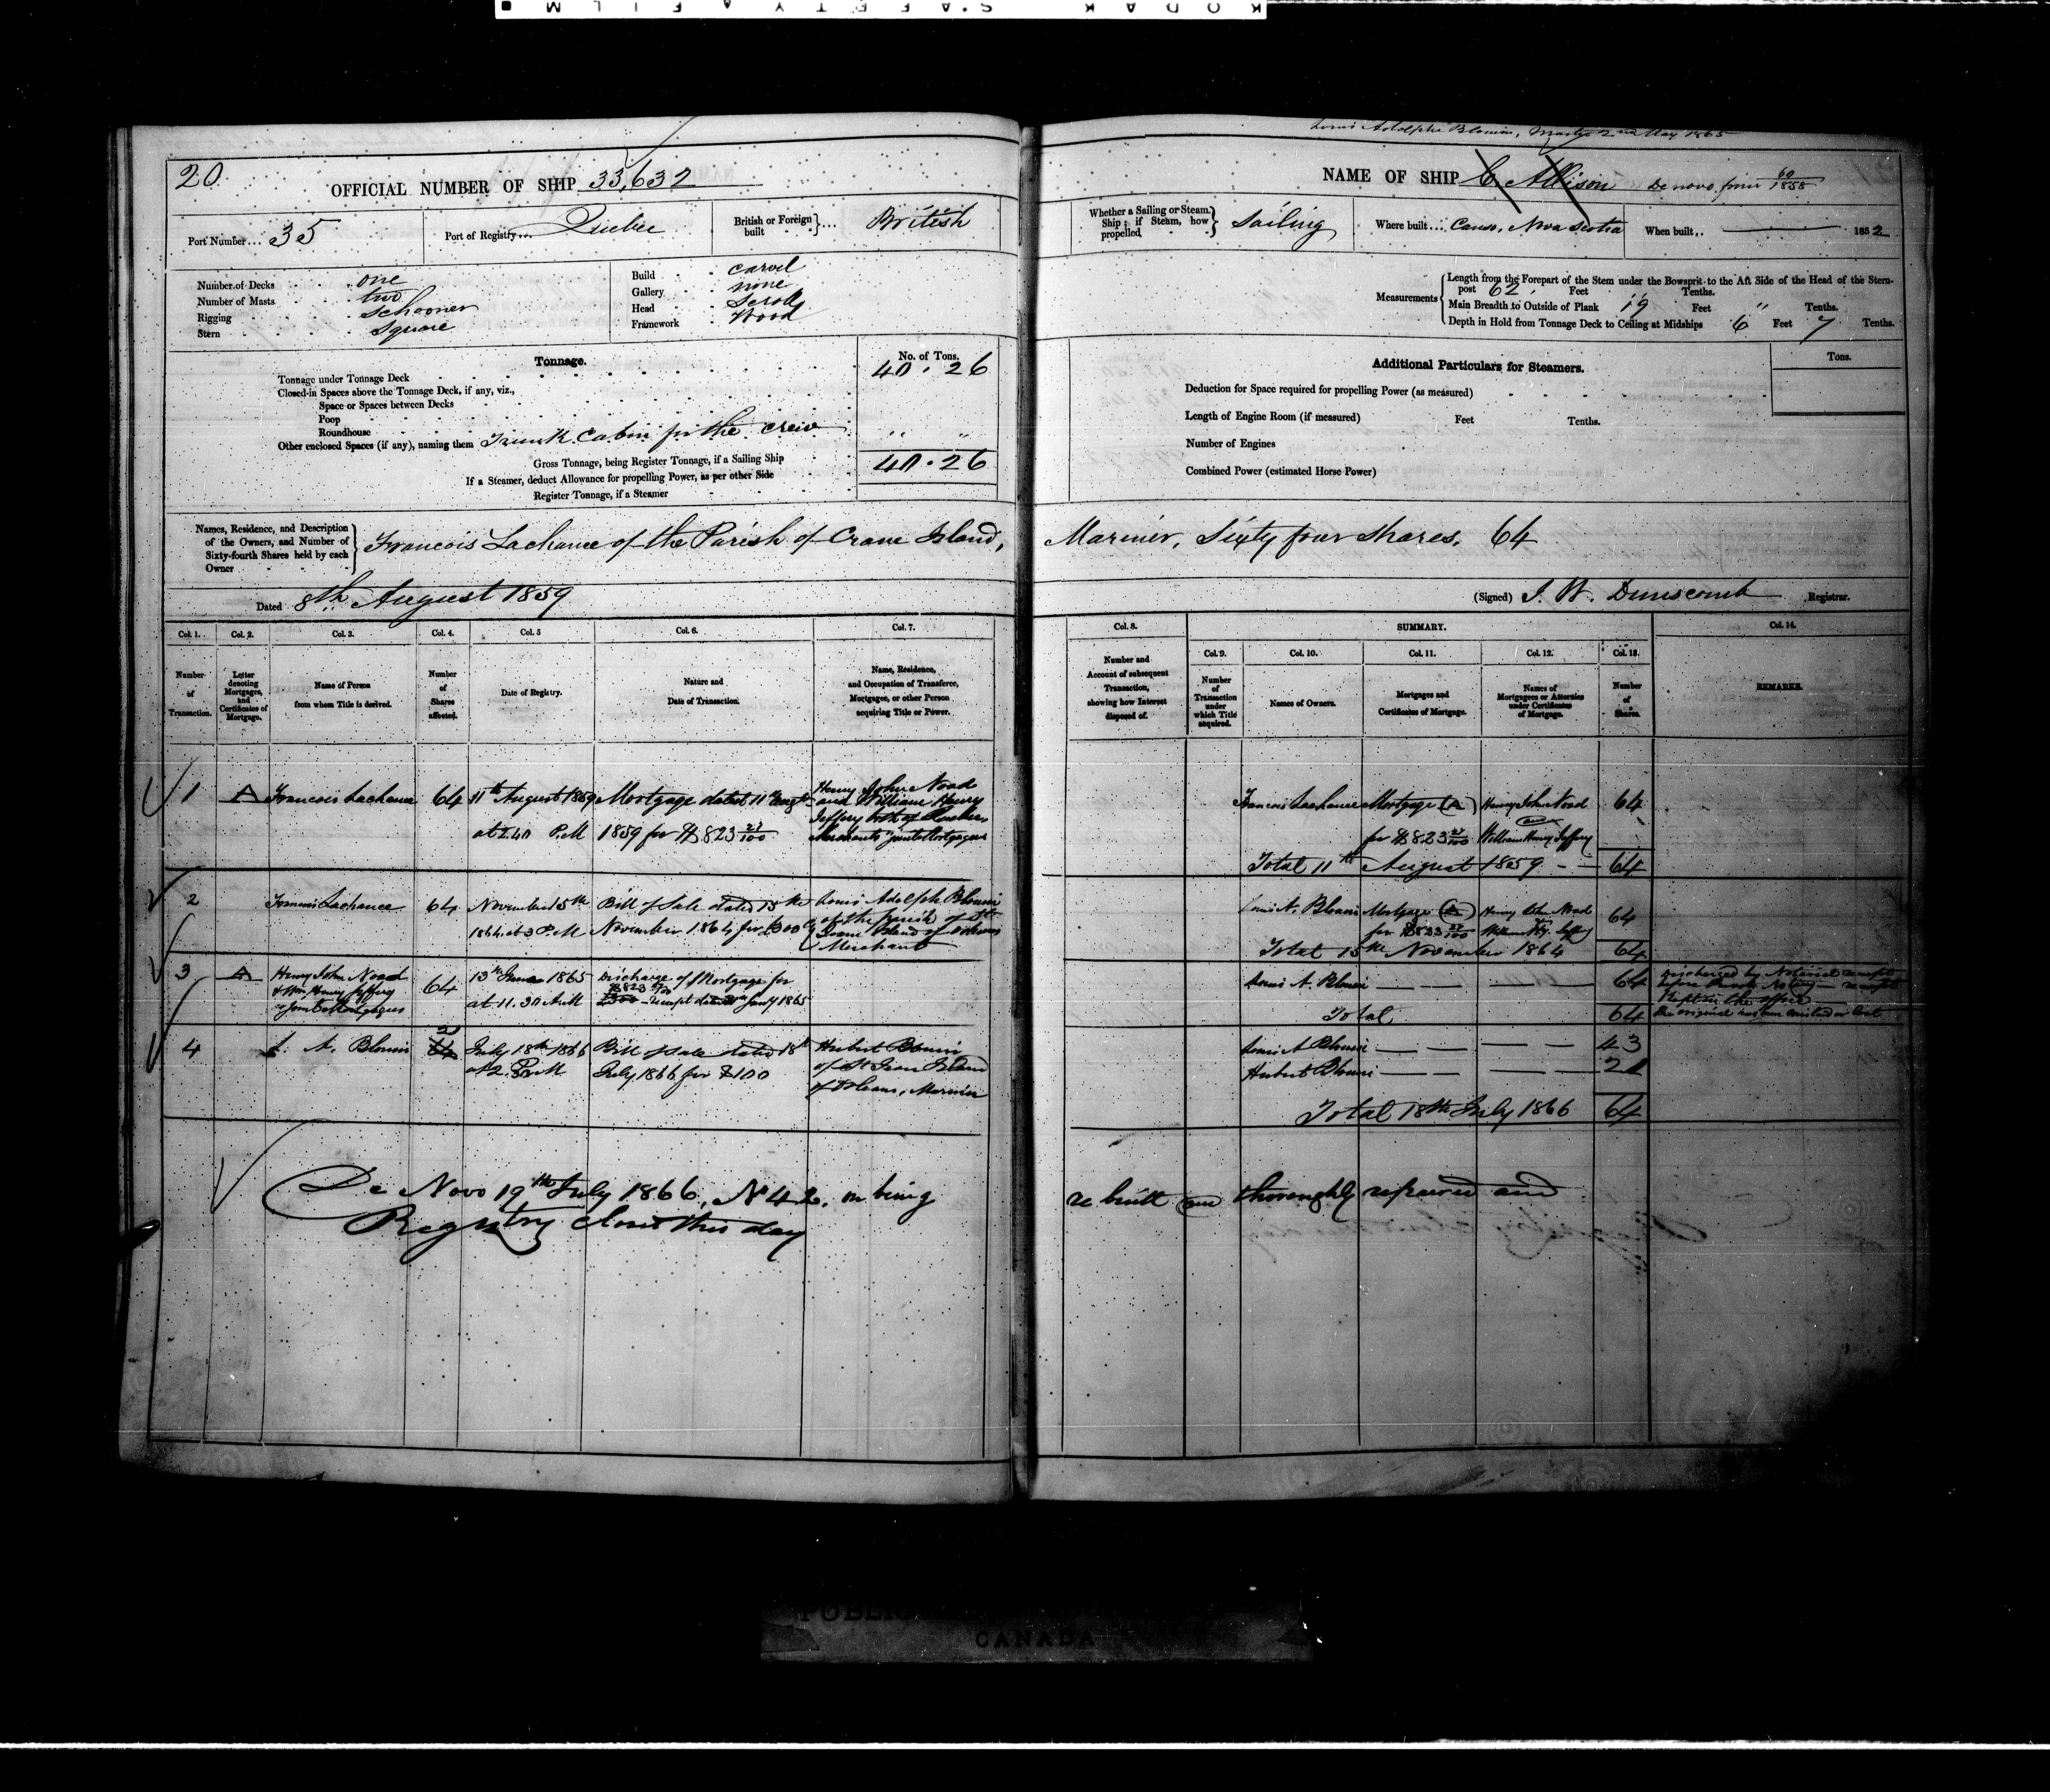 KODAK SAFETY FILM
Louis Adolphe Blouin, Master 2nd May 1865
20
OFFICIAL NUMBER OF SHIP 33,632
NAME OF SHIP C Allison De novo from 60/1858
Port Number... 35
Port of Registry... Quebec
British or Foreign built ... British
Whether a Sailing or Steam Ship; if Steam, how propelled Sailing
Where built... Canso, Nova Scotia
When built.. 1852
Number of Decks one
Number of Masts two
Rigging Schooner
Stern Square
Build carvel
Gallery none
Head Scroll
Framework Wood
Measurements
Length from the Forepart of the Stem under the Bowsprit to the Aft Side of the Head of the Stern-
post 62 Feet Tenths.
Main Breadth to Outside of Plank 19 Feet " Tenths.
Depth in Hold from Tonnage Deck to Ceiling at Midships 6 Feet 7 Tenths.
Tonnage.
No. of Tons.
Tonnage under Tonnage Deck 40.26
Closed-in Spaces above the Tonnage Deck, if any, viz.,
Space or Spaces between Decks
Poop
Roundhouse
Other enclosed Spaces (if any), naming them Trunk Cabin for the crew " "
Gross Tonnage, being Register Tonnage, if a Sailing Ship 40.26
If a Steamer, deduct Allowance for propelling Power, as per other Side
Register Tonnage, if a Steamer
Additional Particulars for Steamers.
Tons.
Deduction for Space required for propelling Power (as measured)
Length of Engine Room (if measured) Feet Tenths.
Number of Engines
Combined Power (estimated Horse Power)
Names, Residence, and Description
of the Owners, and Number of
Sixty-fourth Shares held by each
Owner
Francois Lachance of the Parish of Crane Island, Mariner, Sixty four Shares, 64
Dated 8th August 1859
(Signed) J. W. Dunscomb Registrar.
Col. 1. Col. 2. Col. 3. Col. 4. Col. 5 Col. 6. Col. 7.
Number of Transaction.
Letter denoting Mortgages, and Certificates of Mortgage.
Name of Person from whom Title is derived.
Number of Shares affected.
Date of Registry.
Nature and Date of Transaction.
Name, Residence, and Occupation of Transferee, Mortgagee, or other Person acquiring Title or Power.
Col. 8. SUMMARY. Col. 14.
Col. 9. Col. 10. Col. 11. Col. 12. Col. 13.
Number and Account of subsequent Transaction, showing how Interest disposed of.
Number of Transaction under which Title acquired.
Names of Owners.
Mortgages and Certificates of Mortgage.
Names of Mortgagees or Attornies under Certificates of Mortgage.
Number of Shares.
REMARKS.
1 A Francois Lachance 64 11th August 1859 Mortgage dated 11th Augt Henry John Noad
and William Henry
Jeffery both of Quebec
at 2.40 P.M 1859 for $823 27/100 Merchants joint Mortgagees
Francois Lachance Mortgage (A) Henry John Noad 64
and
for $823 27/100 William Henry Jeffery
Total 11th August 1859 64
2 Francois Lachance 64 November 15th Bill of Sale dated 15th Louis Adolph Blouin
of the Parish of St
1864 at 3 P.M November 1864 for £300 Jean Island of Orleans
Merchant
Louis A. Blouin Mortgage (A) Henry John Noad 64
for $823 27/100 William Hy. Jeffery
Total 15th November 1864 64
3 A Henry John Noad 64 13th June 1865 Discharge of Mortgage for
& Wm Henry Jeffery $823 27/100
Joint Mortgagees at 11.30 A.M receipt dated Jany 1865
Louis A. Blouin 64 Discharged by Notarial receipt
before Notary receipt
Kept in the office
Total 64 The original has been mislaid or lost
4 L. A. Blouin 21 64 July 18th 1866 Bill of Sale dated 18th Hubert Blouin
at 2 P.M July 1866 for $100 of St Jean Island
of Orleans, Mariner
Louis A Blouin 43
Hubert Blouin 21
Total 18th July 1866 64
De Novo 19th July 1866, No 42, on being re built and thoroughly repaired and
Registry closed this day
PUBLIC
CANADA